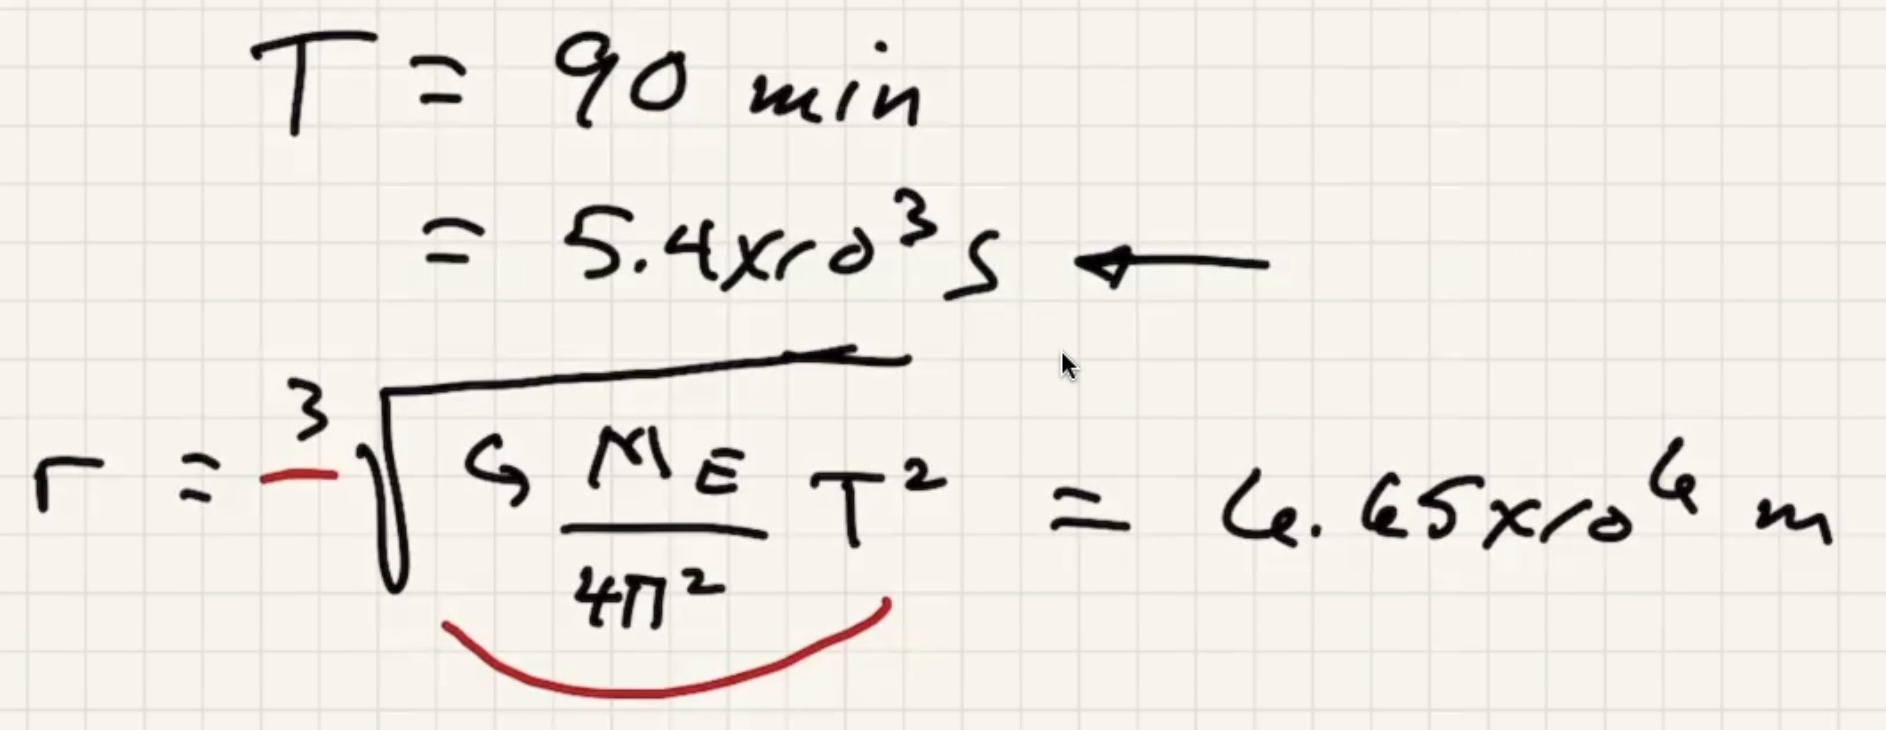 T = 90 min
= 5.4x10³ s ←
r = ³√(G M_E/4π² T²) = 6.65x10⁶ m